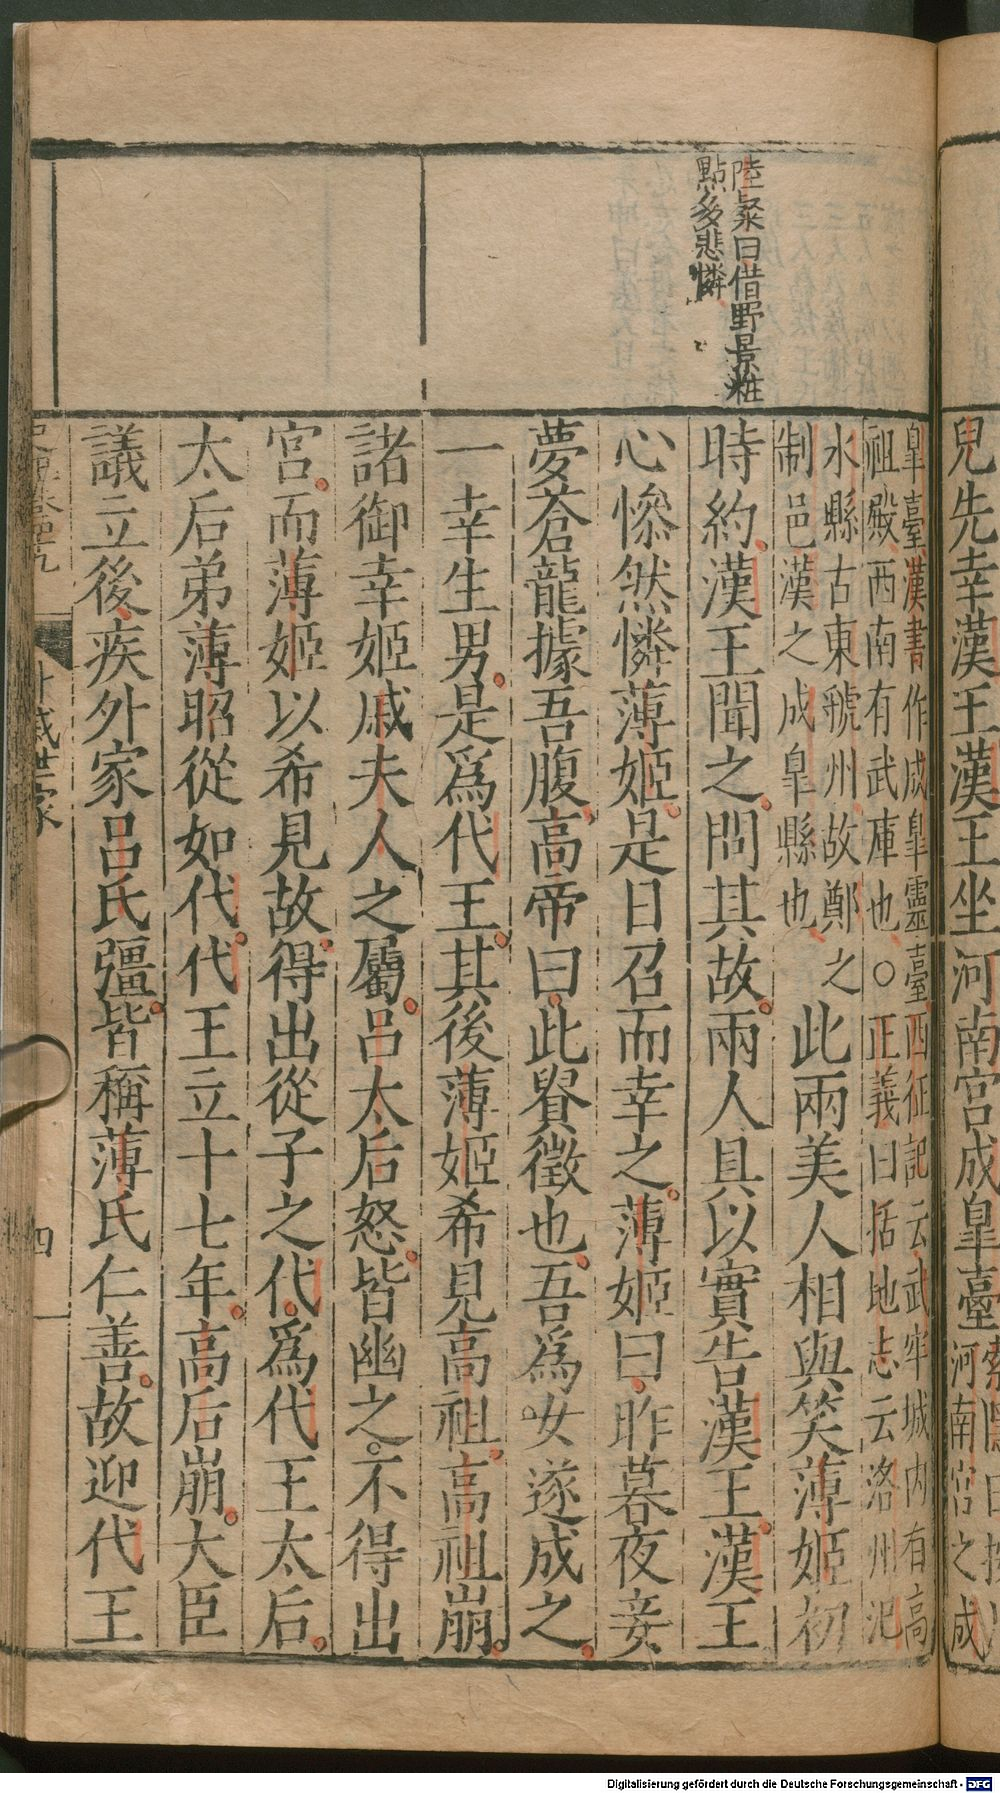 兒先幸漢王漢王坐河南宮成皐臺
河南宮之成
陸粲曰借野景粧
點多悲憐
皐臺漢書作成皐靈臺西征記云武牢城内有高
祖殿西南有武庫也○正義曰括地志云洛州汜
水縣古東虢州故鄭之
制邑漢之成皐縣也
此兩美人相與笑薄姬初
時約漢王聞之問其故兩人具以實告漢王漢王
心慘然憐薄姬是日召而幸之薄姬曰昨暮夜妾
夢蒼龍據吾腹高帝曰此貴徵也吾為女遂成之
一幸生男是爲代王其後薄姬希見高祖高祖崩
諸御幸姬戚夫人之屬呂太后怒皆幽之不得出
宮而薄姬以希見故得出從子之代爲代王太后
太后弟薄昭從如代代王立十七年高后崩大臣
議立後疾外家呂氏彊皆稱薄氏仁善故迎代王
外戚世家
四
Digitalisierung gefördert durch die Deutsche Forschungsgemeinschaft - DFG